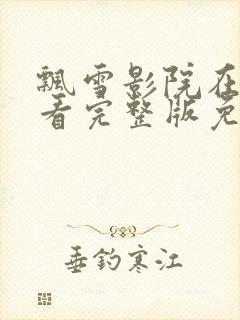 飘雪影院在
看完整版免
垂钓寒江